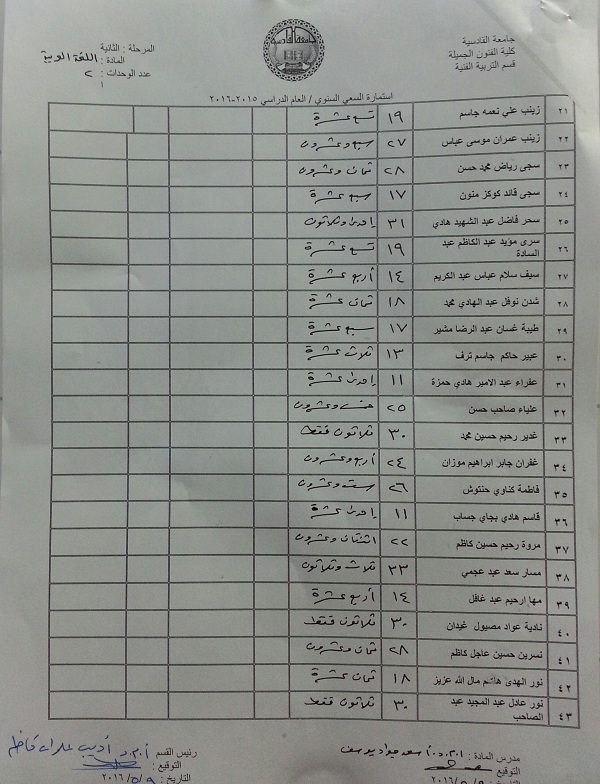 جامعة القادسية
كلية الفنون الجميلة
قسم التربية الفنية
المرحلة : الثانية
المادة : اللغة العربية
عدد الوحدات : ٢
استمارة السعي السنوي / العام الدراسي ٢٠١٥-٢٠١٦
٢١ زينب علي نعمه جاسم ١٩ تسع عشرة
٢٢ زينب عمران موسى عباس ٢٧ سبع وعشرون
٢٣ سجى رياض محمد حسن ٢٨ ثمان وعشرون
٢٤ سجى قائد كوكز منون ١٧ سبع عشرة
٢٥ سحر فاضل عبد الشهيد هادي ٣١ إحدى وثلاثون
٢٦ سرى مؤيد عبد الكاظم عبد السادة ١٩ تسع عشرة
٢٧ سيف سلام عباس عبد الكريم ١٤ أربع عشرة
٢٨ شدن نوفل عبد الهادي محمد ١٨ ثمان عشرة
٢٩ طيبة غسان عبد الرضا مشير ١٧ سبع عشرة
٣٠ عبير حاكم جاسم ترف ١٣ ثلاث عشرة
٣١ عفراء عبد الامير هادي حمزة ١١ إحدى عشرة
٣٢ علياء صاحب حسن ٢٥ خمس وعشرون
٣٣ غدير رحيم حسين محمد ٣٠ ثلاثون فقط
٣٤ غفران جابر ابراهيم موزان ٢٤ أربع وعشرون
٣٥ فاطمة كناوي حنتوش ٢٦ ست وعشرون
٣٦ قاسم هادي بجاي جساب ١١ إحدى عشرة
٣٧ مروة رحيم حسين كاظم ٢٢ اثنتان وعشرون
٣٨ مسار سعد عبد عجمي ٣٣ ثلاث وثلاثون
٣٩ مها ارحيم عبد غافل ١٤ أربع عشرة
٤٠ نادية عواد مصيول غيدان ٣٠ ثلاثون فقط
٤١ نسرين حسين عاجل كاظم ٢٨ ثمان وعشرون
٤٢ نور الهدى هاشم مال الله عزيز ١٨ ثمان عشرة
٤٣ نور عادل عبد المجيد عبد الصاحب ٣٠ ثلاثون فقط
مدرس المادة : ا.م.د. أسعد جواد يوسف
التوقيع :
التاريخ : ٢٠١٦/٥/٩
رئيس القسم أ.م.د أديب علوان كاظم
التوقيع :
التاريخ : ٢٠١٦/٥/٩